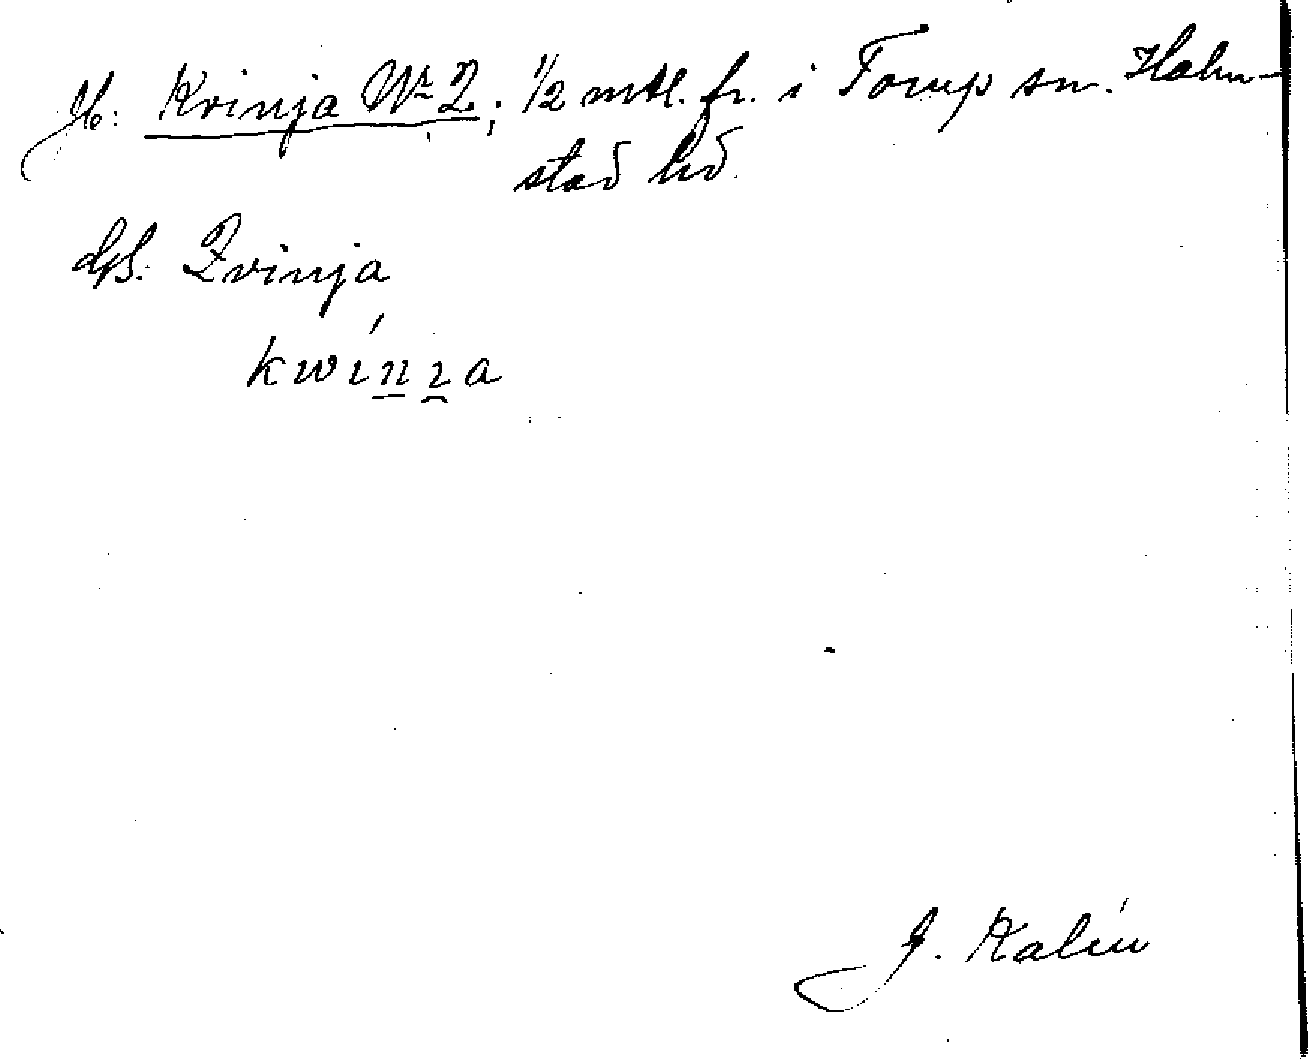 Jb: Kvinja No 2; 1/2 mtl. fr. i Torup sn. Halm-
stad hd.
Qvinja
kwinɪa
J. Kalén